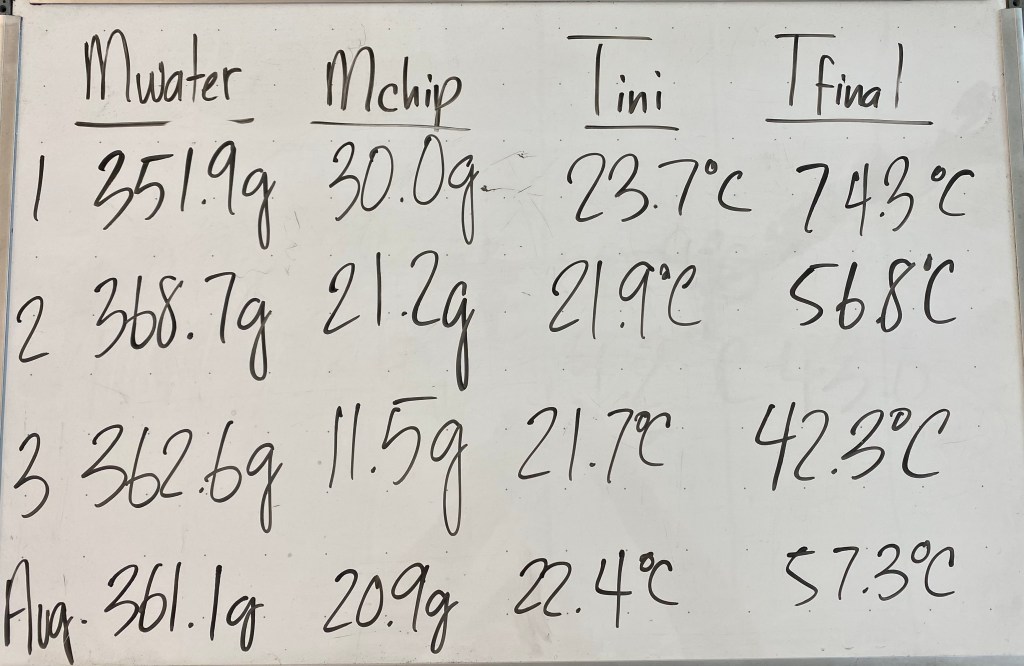 Mwater Mchip Tini Tfinal
1 351.9g 30.0g 23.7°C 74.3°C
2 368.7g 21.2g 21.9°C 56.8°C
3 362.6g 11.5g 21.7°C 42.3°C
Avg. 361.1g 20.9g 22.4°C 57.3°C